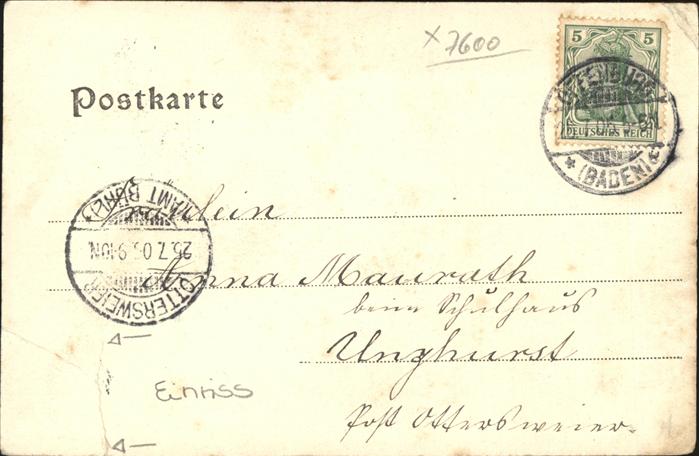 x 7600
Postkarte
5 5
DEUTSCHES REICH
OFFENBURG
(BADEN)
Fräulein
Anna Maurath
beim Schulhaus
Unzhurst
Post Ottersweier.
OTTERSWEIER
25.7.05. 9-10N.
(AMT BÜHL)
Einriss